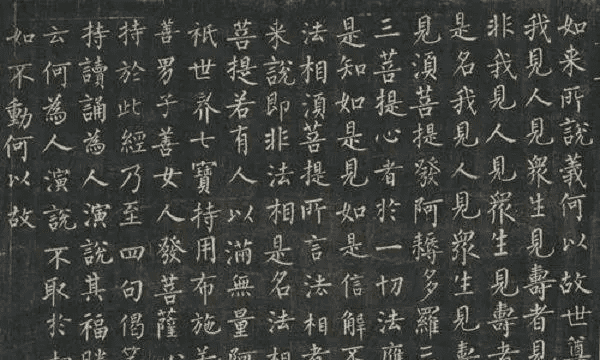 如来所說義何以故世尊
我見人見衆生見壽者見
非我見人見衆生見壽者
是名我見人見衆生見壽
見湏菩提發阿耨多羅三
三菩提心者於一切法應
是知如是見如是信解不
法相湏菩提所言法相者
来說即非法相是名法相
菩提若有人以滿無量阿
祇世界七寶持用布施若
善男子善女人發菩薩
持於此經乃至四句偈等
持讀誦為人演說其福勝
云何為人演說不取於
如不動何以故